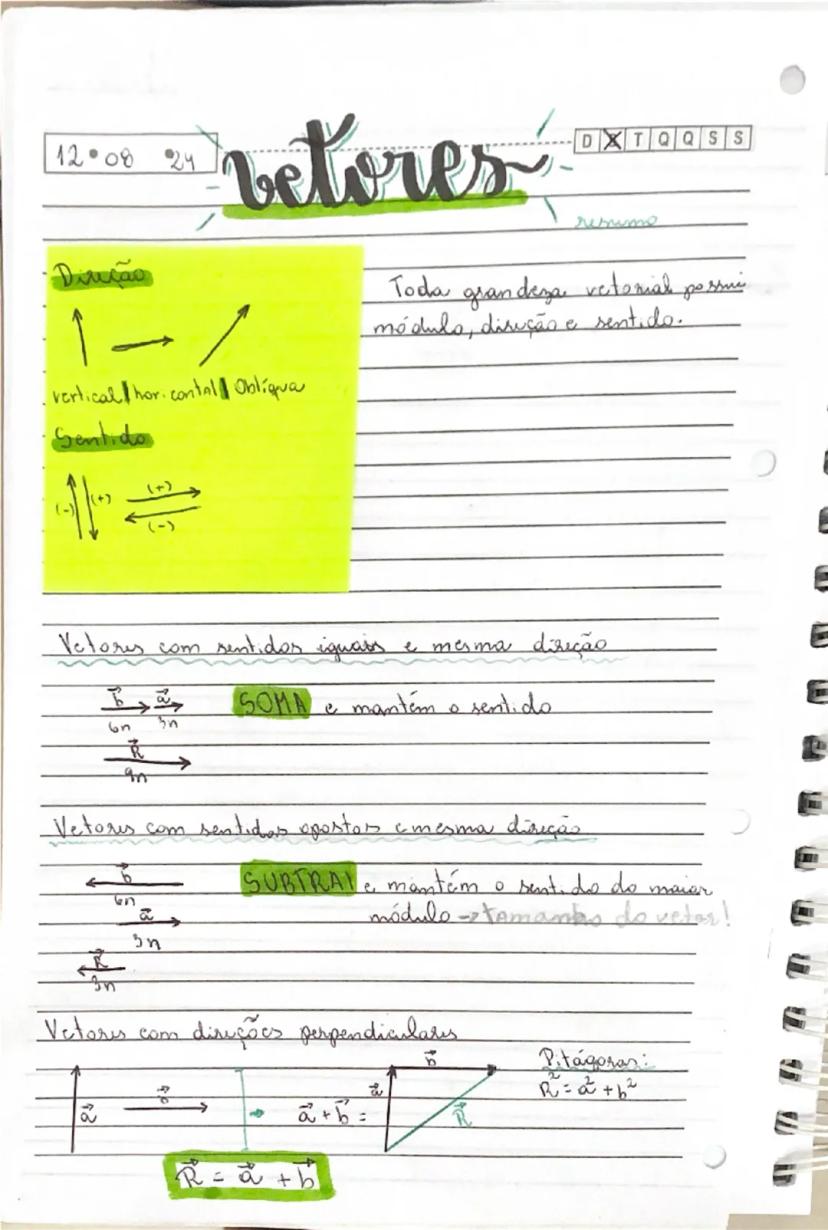 12 • 08 • 24
vetores
D X T Q Q S S
resumo
Direção
vertical | horizontal | Oblíqua
Sentido
(-) (+) (+)
(-)
Toda grandeza vetorial possui
módulo, direção e sentido.
Vetores com sentidos iguais e mesma direção
b a SOMA e mantém o sentido
6n 3n
R
9n
Vetores com sentidos opostos e mesma direção
b SUBTRAI e mantém o sentido do maior
6n módulo → tamanho do vetor!
a
3n
R
3n
Vetores com direções perpendiculares
Pitágoras:
R² = a² + b²
a b → a + b = a b R
R = a + b